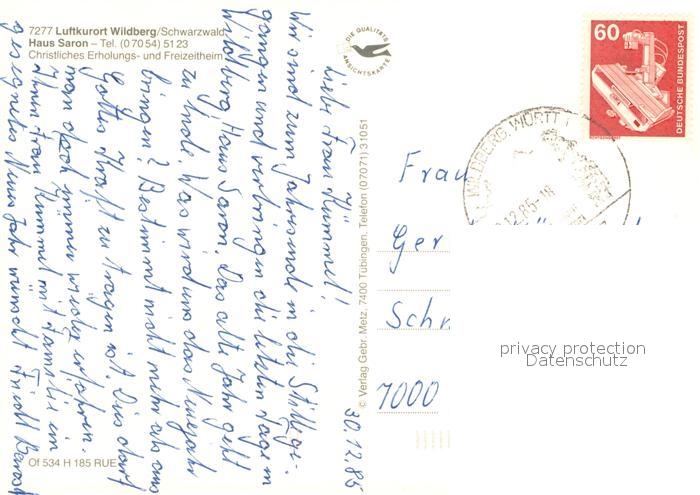 7277 Luftkurort Wildberg/Schwarzwald
Haus Saron – Tel. (07054) 5123
Christliches Erholungs- und Freizeitheim
DIE QUALITÄTS
ANSICHTSKARTE
60
DEUTSCHE BUNDESPOST
WILDBERG, WÜRTT 1
12.85-18
30.12.85
Liebe Frau Kümmel!
Wir sind zum Jahresende in die Stille ge-
gangen und verbringen die letzten Tage in
Wildberg, Haus Saron. Das alte Jahr geht
zu Ende. Was wird uns das Neue Jahr
bringen? Bestimmt nicht mehr als uns
Gottes Kraft zu tragen ist. Dies darf
man doch immer wieder erfahren.
Ihnen Frau Kümmel mit Familie ein
gesegnetes Neues Jahr wünscht
© Verlag Gebr. Metz, 7400 Tübingen, Telefon (07071) 31051
Frau
Ger
Schr
7000
privacy protection
Datenschutz
Of 534 H 185 RUE